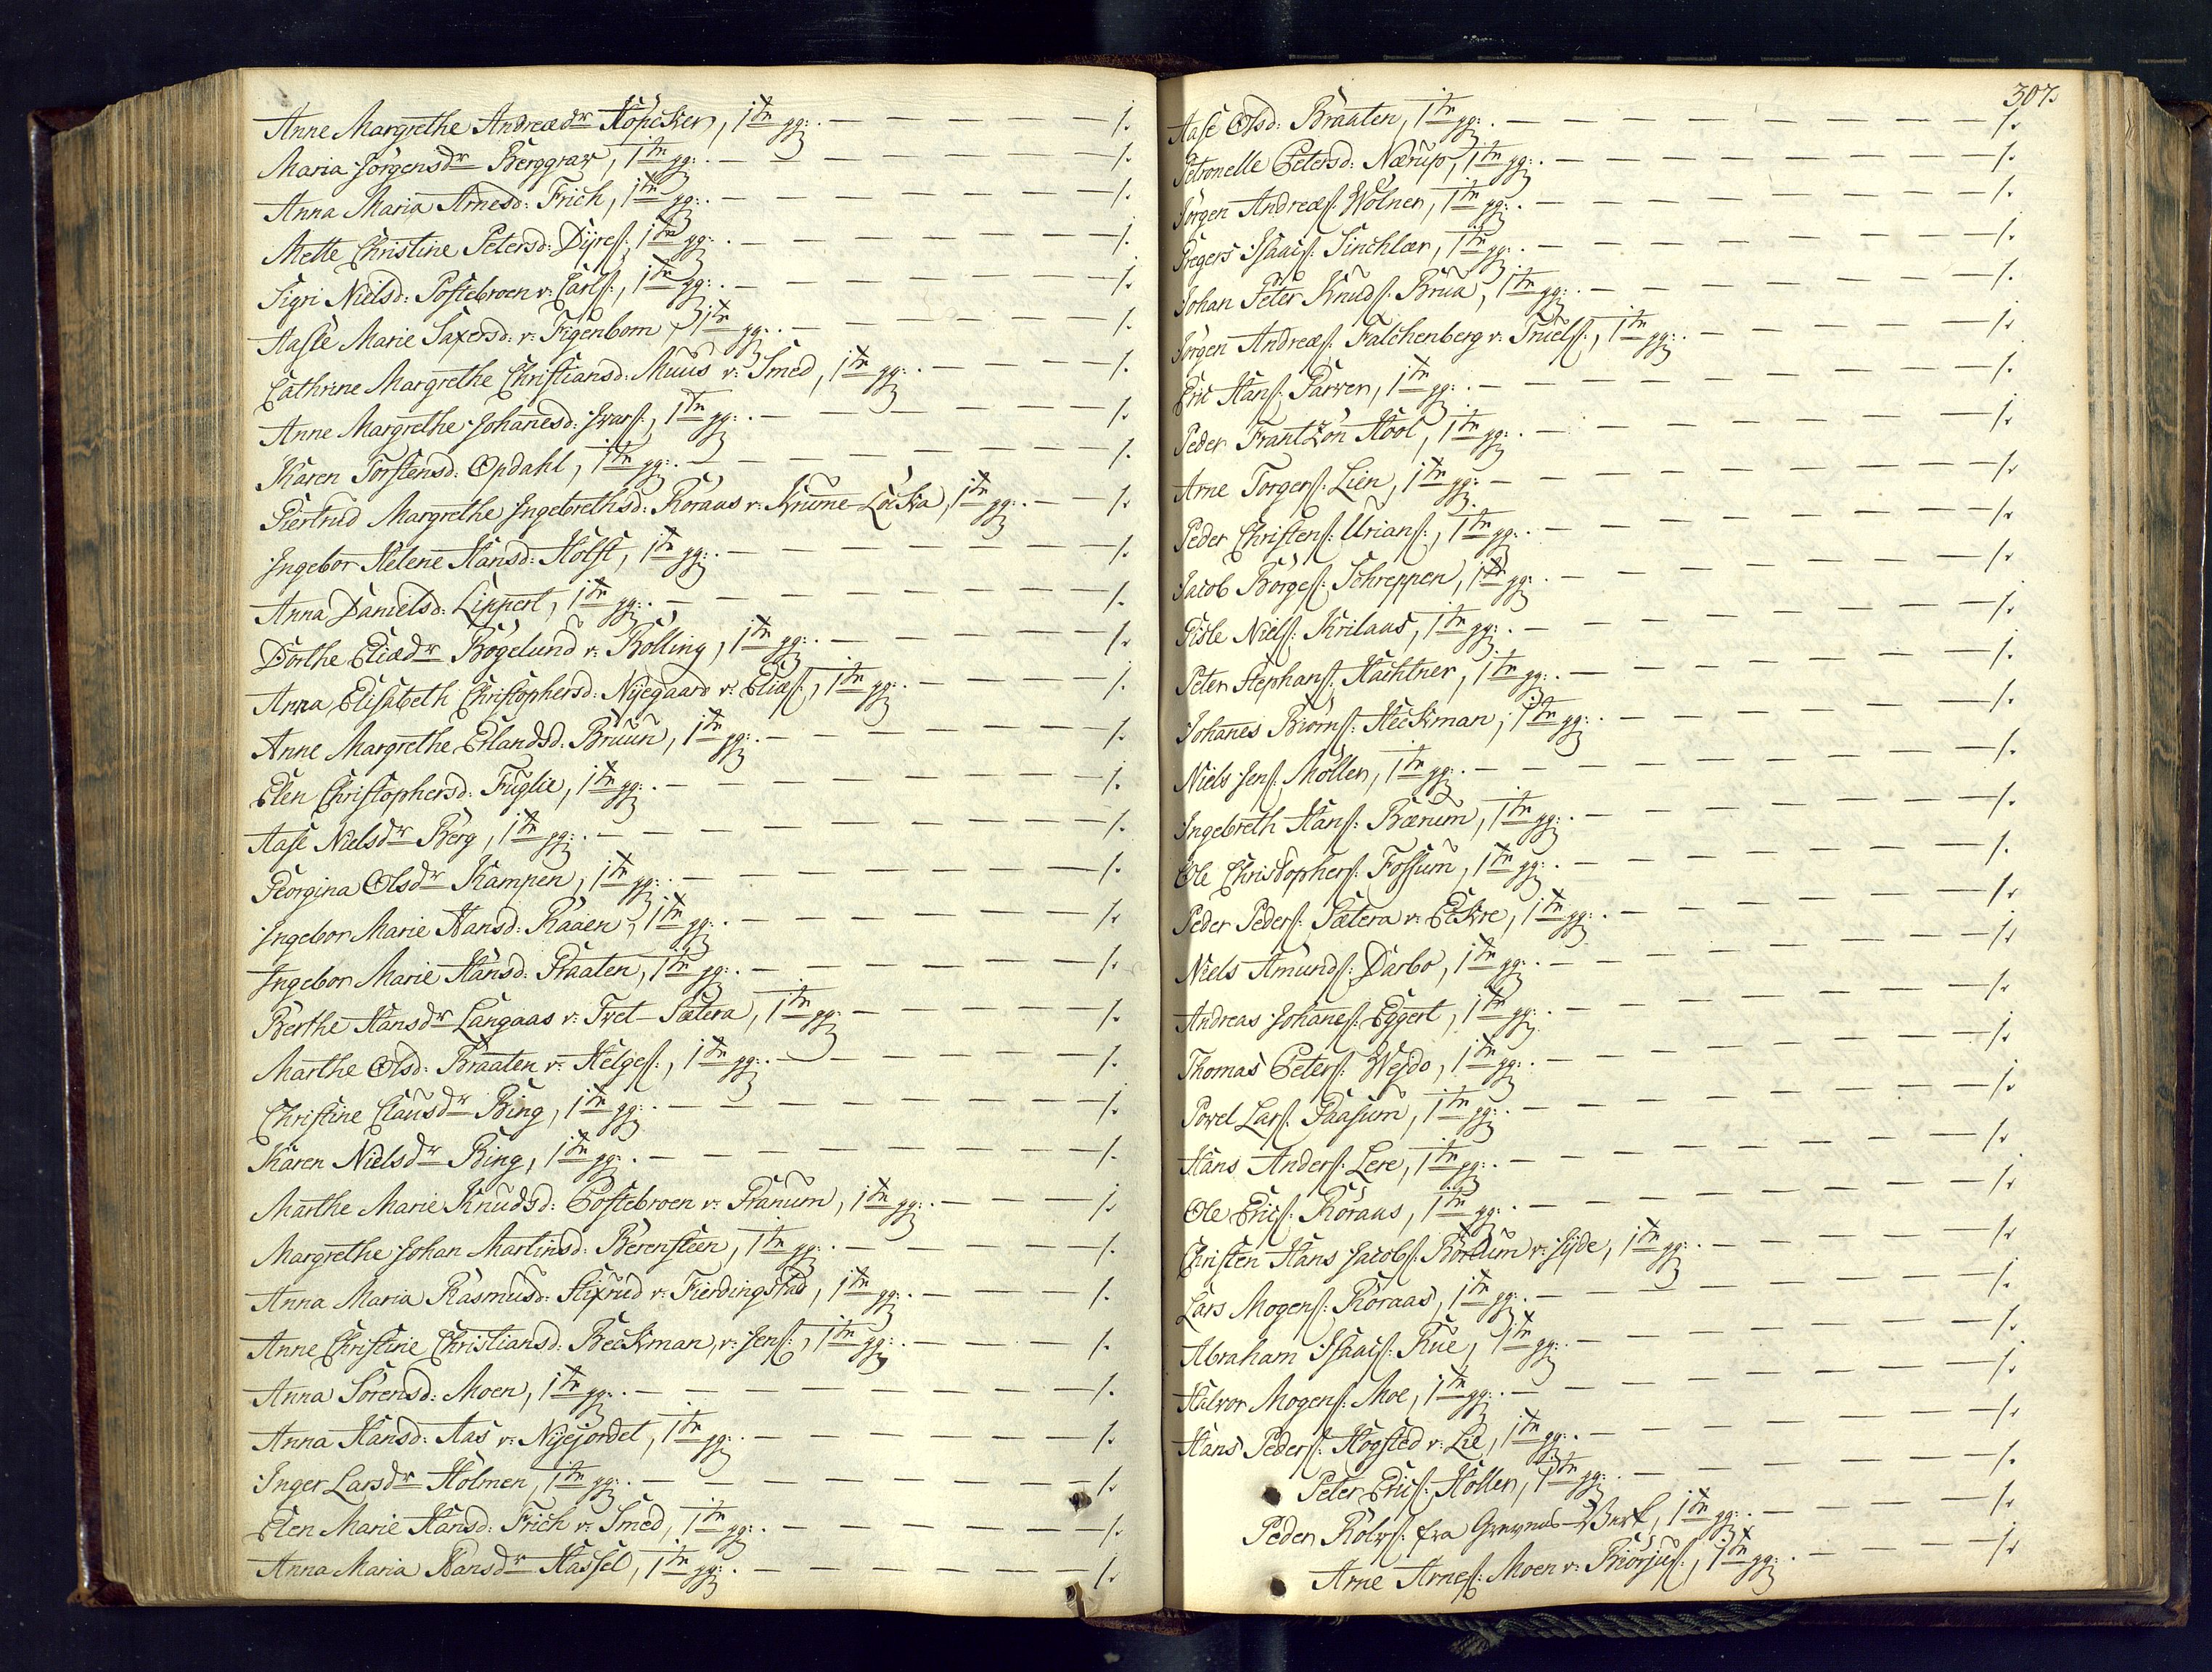 Anne Margrethe Andreædr Höpcker, 1tn gg: — 1.
Maria Jörgensdr Berggrav, 1tn gg: — 1.
Anna Maria Arnesd: Frich, 1tn gg: — 1.
Mette Christine Petersd: Dijres:, 1tn gg: — 1.
Sigri Nielsd: Postebroen v: Carls:, 1tn gg: — 1.
Aasle Marie Saxersd: v: Figenbom, 1tn gg: — 1.
Cathrine Margrethe Christiansd: Muus v: Smed, 1tn gg: — 1.
Anne Margrethe Johanesd: Ivars:, 1tn gg: — 1.
Karen Torstensd: Opdahl, 1tn gg: — 1.
Giertrud Margrethe Ingebrethsd: Röraas v: Krume-Löcka, 1tn gg: — 1.
Ingebor Helene Hansd: Holst, 1tn gg: — 1.
Anna Danielsd: Lippert, 1tn gg: — 1.
Dorthe Eliædr Bögelund v: Bölling, 1tn gg: — 1.
Anna Elisabeth Christophersd: Nijegaard v: Eliæs:, 1tn gg: — 1.
Anne Margrethe Erlandsd: Bruun, 1tn gg: — 1.
Elen Christophersd: Fuglie, 1tn gg: — 1.
Aase Nielsdr Berg, 1tn gg: — 1.
Georgina Olsdr Kampen, 1tn gg: — 1.
Ingebor Marie Hansd: Raaen, 1tn gg: — 1.
Ingebor Marie Hansd: Braaten, 1tn gg: — 1.
Berthe Hansdr Langaas v: Tvet-Sætera, 1tn gg: — 1.
Marthe Olsd: Braaten v: Helges:, 1tn gg: — 1.
Christine Clausdr Bing, 1tn gg: — 1.
Karen Nielsdr Bing, 1tn gg: — 1.
Marthe Marie Knudsd: Postebroen v: Granum, 1tn gg: — 1.
Margrethe Johan Martinsd: Berensteen, 1tn gg: — 1.
Anna Maria Rasmusd: Stixrud v: Fierdingstad, 1tn gg: — 1.
Anne Christine Christiansd: Beckman, v: Jens:, 1tn gg: — 1.
Anna Sörensd: Moen, 1tn gg: — 1.
Anna Hansd: Aas v: Nijejordet, 1tn gg: — 1.
Inger Larsdr Holmen, 1tn gg: — 1.
Elen Marie Hansd: Frich v: Smed, 1tn gg: — 1.
Anna Maria Hansdr Hassel, 1tn gg: — 1.
307.
Aase Olsd: Braaten, 1tn gg: — 1.
Petronelle Petersd: Nærup, 1tn gg: — 1.
Jörgen Andreæs: Wölner, 1tn gg: — 1.
Gregers Isaacs: Sinchlær, 1tn gg: — 1.
Johan Peter Knuds: Brua, 1tn gg: — 1.
Jörgen Andreæs: Falchenberg v: Truels:, 1tn gg: — 1.
Eric Hans: Garver, 1tn gg: — 1.
Peder Frantzön Hööl, 1tn gg: — 1.
Arne Torgers: Lien, 1tn gg: — 1.
Peder Christens: Urians:, 1tn gg: — 1.
Jacob Börges: Schreppen, 1tn gg: — 1.
Gisle Niels: Krilaas, 1tn gg: — 1.
Peter Stephans: Hachtner, 1tn gg: — 1.
Johanes Biörns: Heckman, 1tn gg: — 1.
Niels Jens: Möller, 1tn gg: — 1.
Ingebreth Hans: Bærum, 1tn gg: — 1.
Ole Christophers: Fossum, 1tn gg: — 1.
Peder Peders: Sætera v: Eckre, 1tn gg: — 1.
Niels Amunds: Darbo, 1tn gg: — 1.
Andreas Johanes: Eggert, 1tn gg: — 1.
Thomas Peters: Wejdo, 1tn gg: — 1.
Povel Lars: Gaasum, 1tn gg: — 1.
Hans Anders: Lere, 1tn gg: — 1.
Ole Erics: Röraas, 1tn gg: — 1.
Christen Hans Jacobs: Bördum v: Jijde, 1tn gg: — 1.
Lars Mogens: Röraas, 1tn gg: — 1.
Abraham Isaacs: Rue, 1tn gg: — 1.
Halvor Mogens: Moe, 1tn gg: — 1.
Hans Peders: Högsted v: Lie, 1tn gg: — 1.
Peter Erics: Holler, 1tn gg: — 1.
Peder Rolvs: fra Grevens-Verk, 1tn gg: — 1.
Arne Arnes: Moen v: Biörjus:, 1tn gg: — 1.